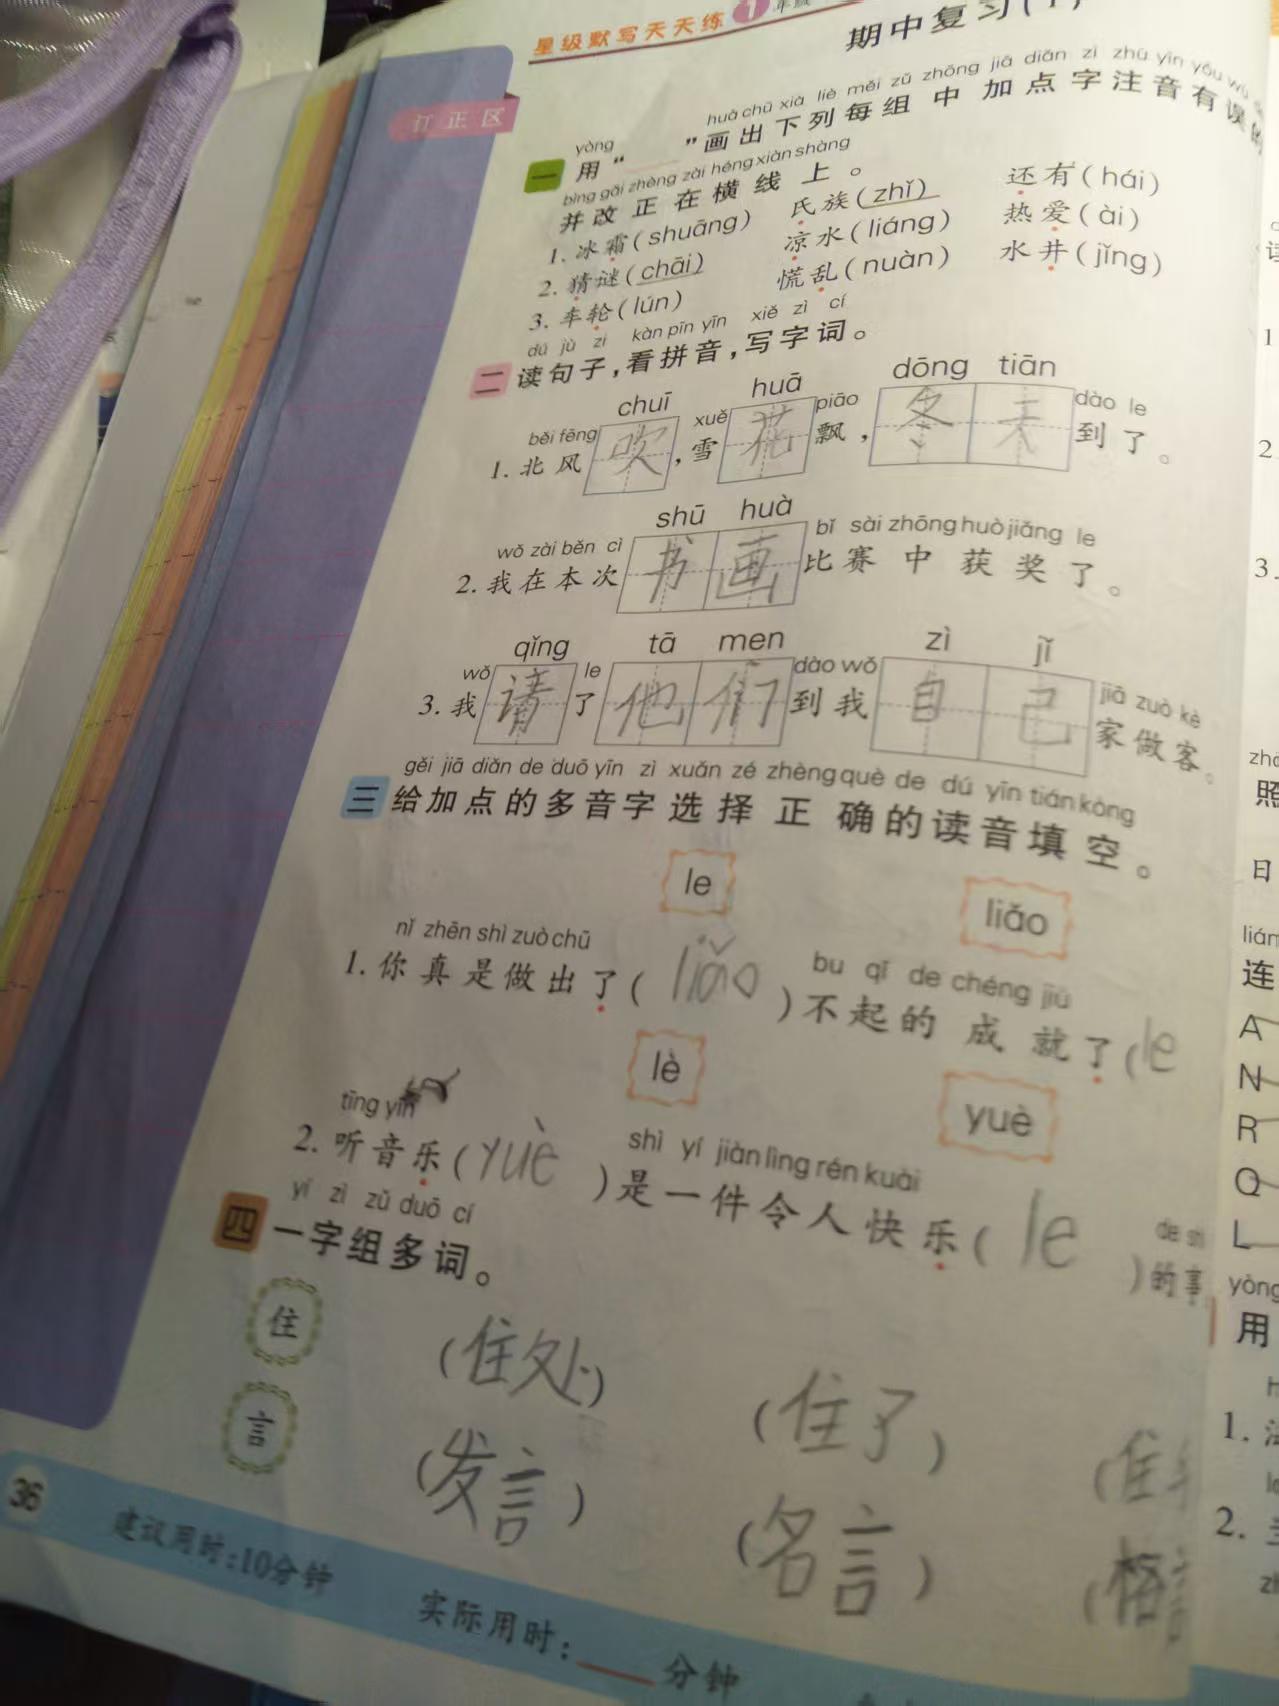 星级默写天天练 1 年级
期中复习(1)
订正区
yòng
huà chū xià liè měi zǔ zhōng jiā diǎn zì zhù yīn yǒu wù
一 用“ ”画出下列每组中加点字注音有误的
bìng gǎi zhèng zài héng xiàn shàng
并改正在横线上。
1. 冰霜(shuāng) 氏族(zhǐ) 还有(hái)
2. 猜谜(chāi) 凉水(liáng) 热爱(ài)
3. 车轮(lún) 慌乱(nuàn) 水井(jǐng)
dú jù zi kàn pīn yīn xiě zì cí
二 读句子,看拼音,写字词。
běi fēng chuī xuě huā piāo dōng tiān dào le
1. 北风吹,雪花飘,冬天到了。
wǒ zài běn cì shū huà bǐ sài zhōng huò jiǎng le
2. 我在本次书画比赛中获奖了。
wǒ qǐng le tā men dào wǒ zì jǐ jiā zuò kè
3. 我请了他们到我自己家做客。
gěi jiā diǎn de duō yīn zì xuǎn zé zhèng què de dú yīn tián kòng
三 给加点的多音字选择正确的读音填空。
le liǎo
nǐ zhēn shì zuò chū bu qǐ de chéng jiù
1. 你真是做出了(liǎo)不起的成就了(le
lè yuè
tīng yīn shì yí jiàn lìng rén kuài de shì
2. 听音乐(yuè)是一件令人快乐(le)的事
yí zì zǔ duō cí
四 一字组多词。
住 (住处) (住了) (住
言 (发言) (名言) (
36
建议用时:10分钟 实际用时: 分钟
1
2.
3.
照
日
连
A
N
R
Q
L
yòng
用
1.
2.